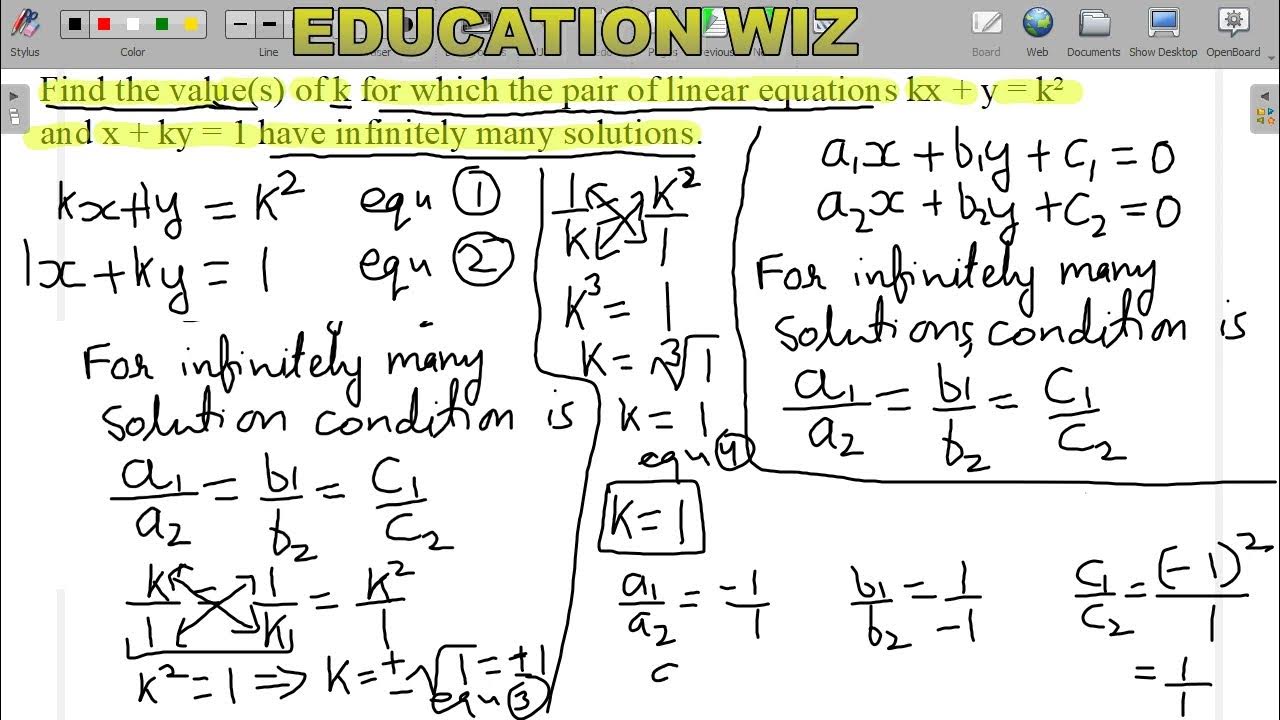 Stylus
Color
Line
EDUCATION WIZ
Board
Web
Documents
Show Desktop
OpenBoard
Find the value(s) of k for which the pair of linear equations kx + y = k²
and x + ky = 1 have infinitely many solutions.
kx+1y = k² equ ①
1x + ky = 1 equ ②
For infinitely many
solution condition is
a₁/a₂ = b₁/b₂ = c₁/c₂
k/1 = 1/k = k²/1
k² = 1 ⇒ k = ±√1 = ±1
equ ③
1/k = k²/1
k³ = 1
k = ³√1
k = 1
equ ④
k = 1
a₁x + b₁y + c₁ = 0
a₂x + b₂y + c₂ = 0
For infinitely many
solutions, condition is
a₁/a₂ = b₁/b₂ = c₁/c₂
a₁/a₂ = -1/1 b₁/b₂ = 1/-1 c₁/c₂ = (-1)²/1
= 1/1